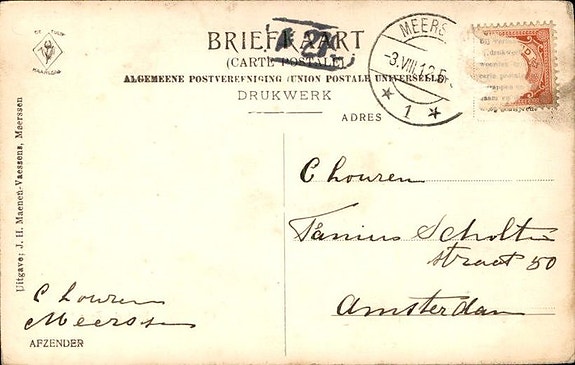 BRIEFKAART
(CARTE POSTALE)
ALGEMEENE POSTVEREENIGING (UNION POSTALE UNIVERSELLE)
DRUKWERK
ADRES
MEERS
-3.VIII.12.5-
1
DE TULP
HAARLEM
C Louren
Straat 50
Amsterdam
C Louren
Meerssen
AFZENDER
Uitgave: J. H. Maenen-Vaessens, Meerssen